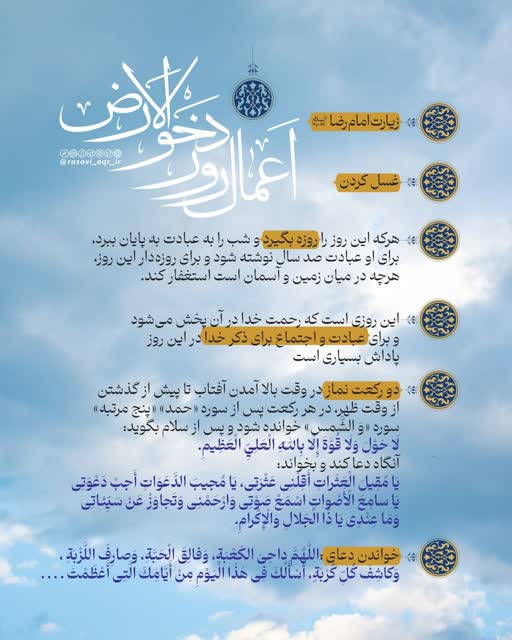 اعمال روز دحوالارض
@razavi_aqr_ir
زیارت امام رضا
غسل کردن
هرکه این روز را روزه بگیرد و شب را به عبادت به پایان ببرد،
برای او عبادت صد سال نوشته شود و برای روزه‌دار این روز،
هرچه در میان زمین و آسمان است استغفار کند.
این روزی است که رحمت خدا در آن پخش می‌شود
و برای عبادت و اجتماع برای ذکر خدا در این روز
پاداش بسیاری است
دو رکعت نماز در وقت بالا آمدن آفتاب تا پیش از گذشتن
از وقت ظهر، در هر رکعت پس از سوره «حمد» «پنج مرتبه»
سوره «وَ الشَّمسِ» خوانده شود و پس از سلام بگوید:
لا حَوْلَ وَلا قُوَّةَ إِلا بِاللهِ الْعَلِيِّ الْعَظِيمِ.
آنگاه دعا کند و بخواند:
يَا مُقِيلَ الْعَثَراتِ أَقِلْنِی عَثْرَتِی، يَا مُجِيبَ الدَّعَوَاتِ أَجِبْ دَعْوَتِی
يَا سامِعَ الْأَصْواتِ اسْمَعْ صَوْتِی وَارْحَمْنِی وَتَجاوَزْ عَنْ سَيِّئاتِی
وَمَا عِنْدِی يَا ذَا الْجَلالِ وَالْإِكْرامِ.
خواندن دعای: اللّٰهُمَّ داحِیَ الْكَعْبَةِ، وَفالِقَ الْحَبَّةِ، وَصارِفَ اللَّزْبَةِ،
وَكاشِفَ كُلِّ كُرْبَةٍ، أَسْأَلُكَ فِی هٰذَا الْيَوْمِ مِنْ أَيّامِكَ الَّتِی أَعْظَمْتَ ....